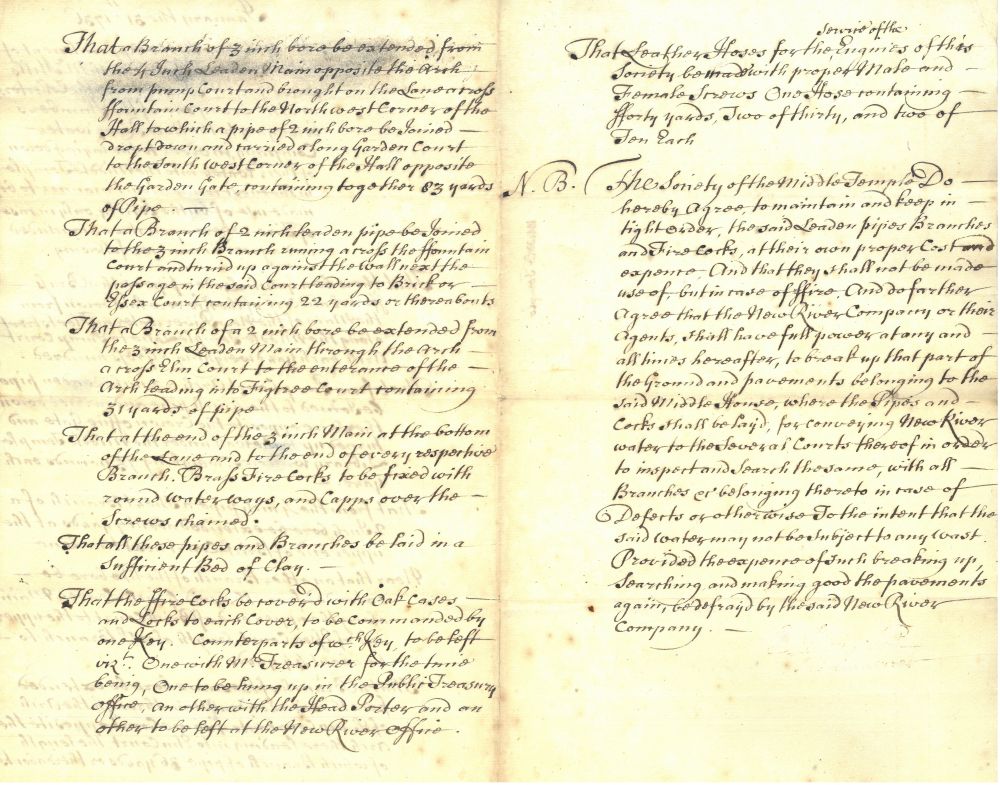 That a Branch of 3 inch bore be extended from
the 4 Inch Leaden Main opposite the Arch
from pump Court and brought on the Lane across
ffountain Court to the North west Corner of the
Hall to which a pipe of 2 inch bore be Joined —
dropt down and carried along Garden Court
to the South West Corner of the Hall opposite
the Garden Gate, containing together 83 yards
of Pipe. —
That a Branch of 2 inch leaden pipe be Joined
to the 3 inch Branch runing across the ffountain
Court and turnd up against the Wall next the
passage in the said Court leading to Brick or
Essex Court containing 22 yards or thereabouts
That a Branch of a 2 inch bore be extended from
the 3 inch Leaden Main through the Arch —
across Elm Court to the enterance of the —
Arch leading into Figtree Court containing
31 yards of pipe
That at the end of the 3 inch Main at the bottom
of the Lane and to the end of every respective
Branch. Brass Fire Cocks to be fixed with
round water ways, and Capps over the —
Screws chained.
That all these pipes and Branches be laid in a
Sufficient Bed of Clay. —
That the ffire Cocks be cover'd with Oak Cases —
and Locks to each Cover, to be Commanded by
one Key. Counterparts of wch Key to be left
vizt. One with Mr. Treasurer for the time
being, One to be hung up in the Public Treasury
office, an other with the Head Porter and an
other to be left at the New River Office.
Service of the
That Leather Hoses for the Engines of this
Society be made with proper Male and —
Female Screws One Hose containing —
fforty yards, Two of thirty, and two of
Ten Each
N. B. The Society of the Middle Temple Do —
hereby Agree, to maintain and keep in —
tight order, the said Leaden pipes Branches
and Fire Cocks, at their own proper Cost and
expence. And that they shall not be made
use of, but in case of ffire, And do farther
Agree that the New River Company or their
Agents, shall have full power at any and —
all times hereafter, to break up that part of
the Ground and pavements belonging to the
said Middle House, where the Pipes and —
Cocks shall be layd, for conveying New River
water to the Several Courts thereof in order
to inspect and Search the same, with all —
Branches &c belonging thereto in case of
Defects or otherwise To the intent that the
said water may not be Subject to any wast.
Provided the expence of such breaking up,
Searching and making good the pavements
again, be defray'd by the said New River
Company. —